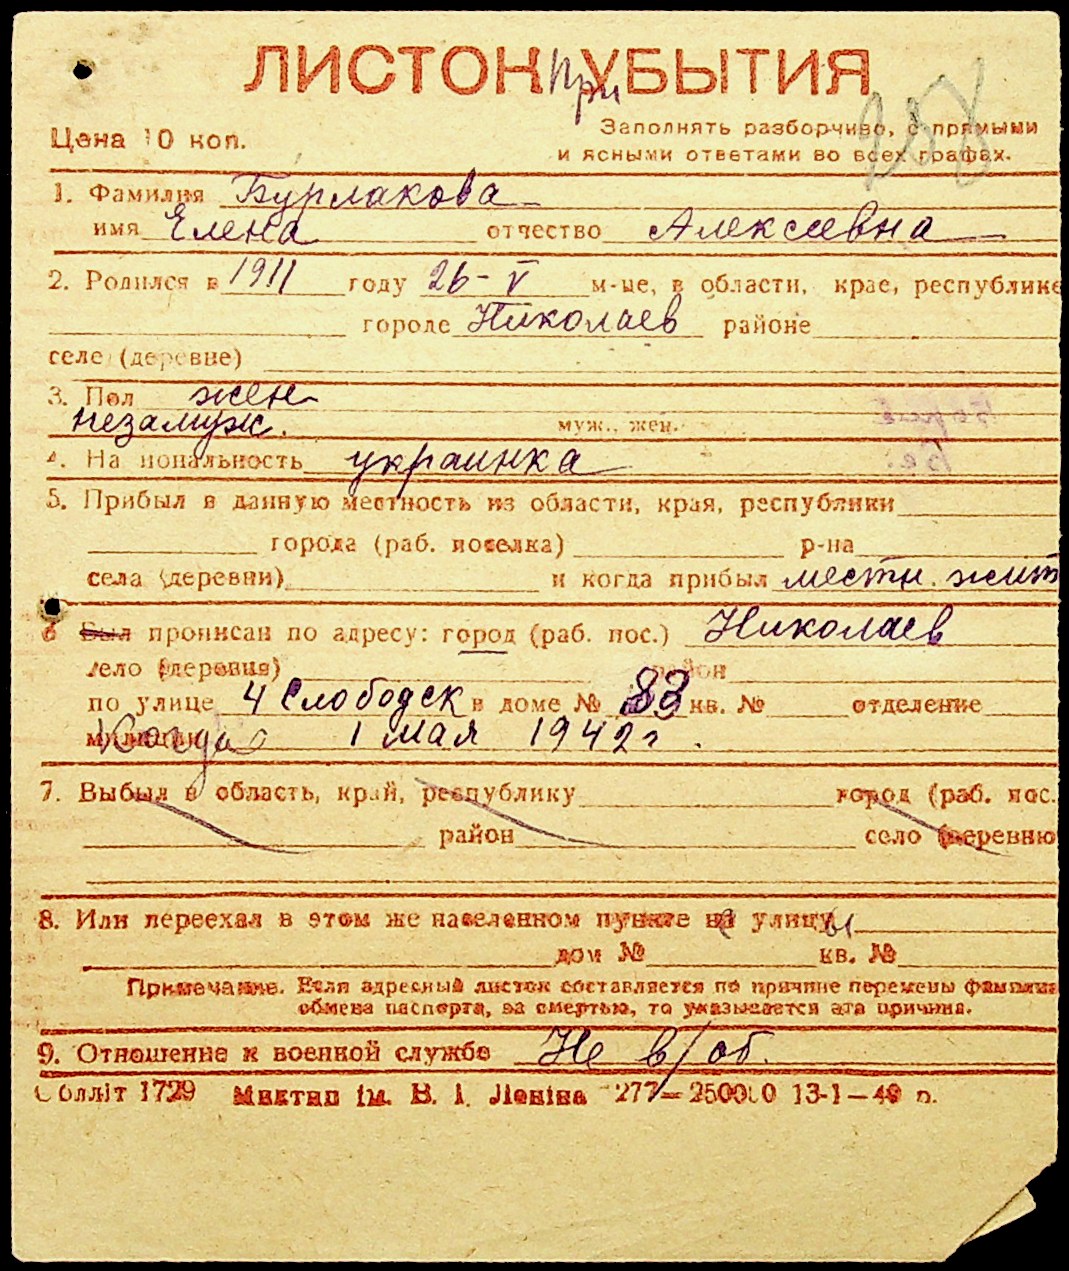 ЛИСТОК при УБЫТИЯ
258
Цена 10 коп.
Заполнять разборчиво, с прямыми
и ясными ответами во всех графах.
1. Фамилия Бурлакова
имя Елена отчество Алексеевна
2. Родился в 1911 году 26-V м-це, в области, крае, республике
городе Николаев районе
селе (деревне)
3. Пол жен
незамуж. муж., жен.
4. На иональность украинка
5. Прибыл в данную местность из области, края, республики
города (раб. поселка) р-на
села (деревни) и когда прибыл местн. жит
6 Был прописан по адресу: город (раб. пос.) Николаев
село (деревня) район
по улице 4 Слободск в доме № 83 кв. № отделение
Когда 1 мая 1942 г.
7. Выбыл в область, край, республику город (раб. пос.
район село (деревню
8. Или переехал в этом же населенном пункте на улицу
дом № кв. №
Примечание. Если адресный листок составляется по причине перемены фамилии
обмена паспорта, за смертью, то указывается эта причина.
9. Отношение к военной службе Не в/об.
Облліт 1729 Миктип ім. В. І. Леніна 277—250000 13-1—40 р.